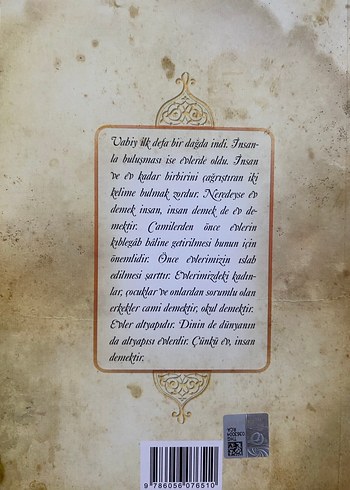 Vahiy ilk defa bir dağda indi. İnsan-
la buluşması ise evlerde oldu. İnsan
ve ev kadar birbirini çağrıştıran iki
kelime bulmak zordur. Neredeyse ev
demek insan, insan demek de ev de-
mektir. Camilerden önce evlerin
kıblegâh hâline getirilmesi bunun için
önemlidir. Önce evlerimizin ıslah
edilmesi şarttır. Evlerimizdeki kadın-
lar, çocuklar ve onlardan sorumlu olan
erkekler cami demektir, okul demektir.
Evler altyapıdır. Dinin de dünyanın
da altyapısı evlerdir. Çünkü ev, insan
demektir.
9 786056 076510